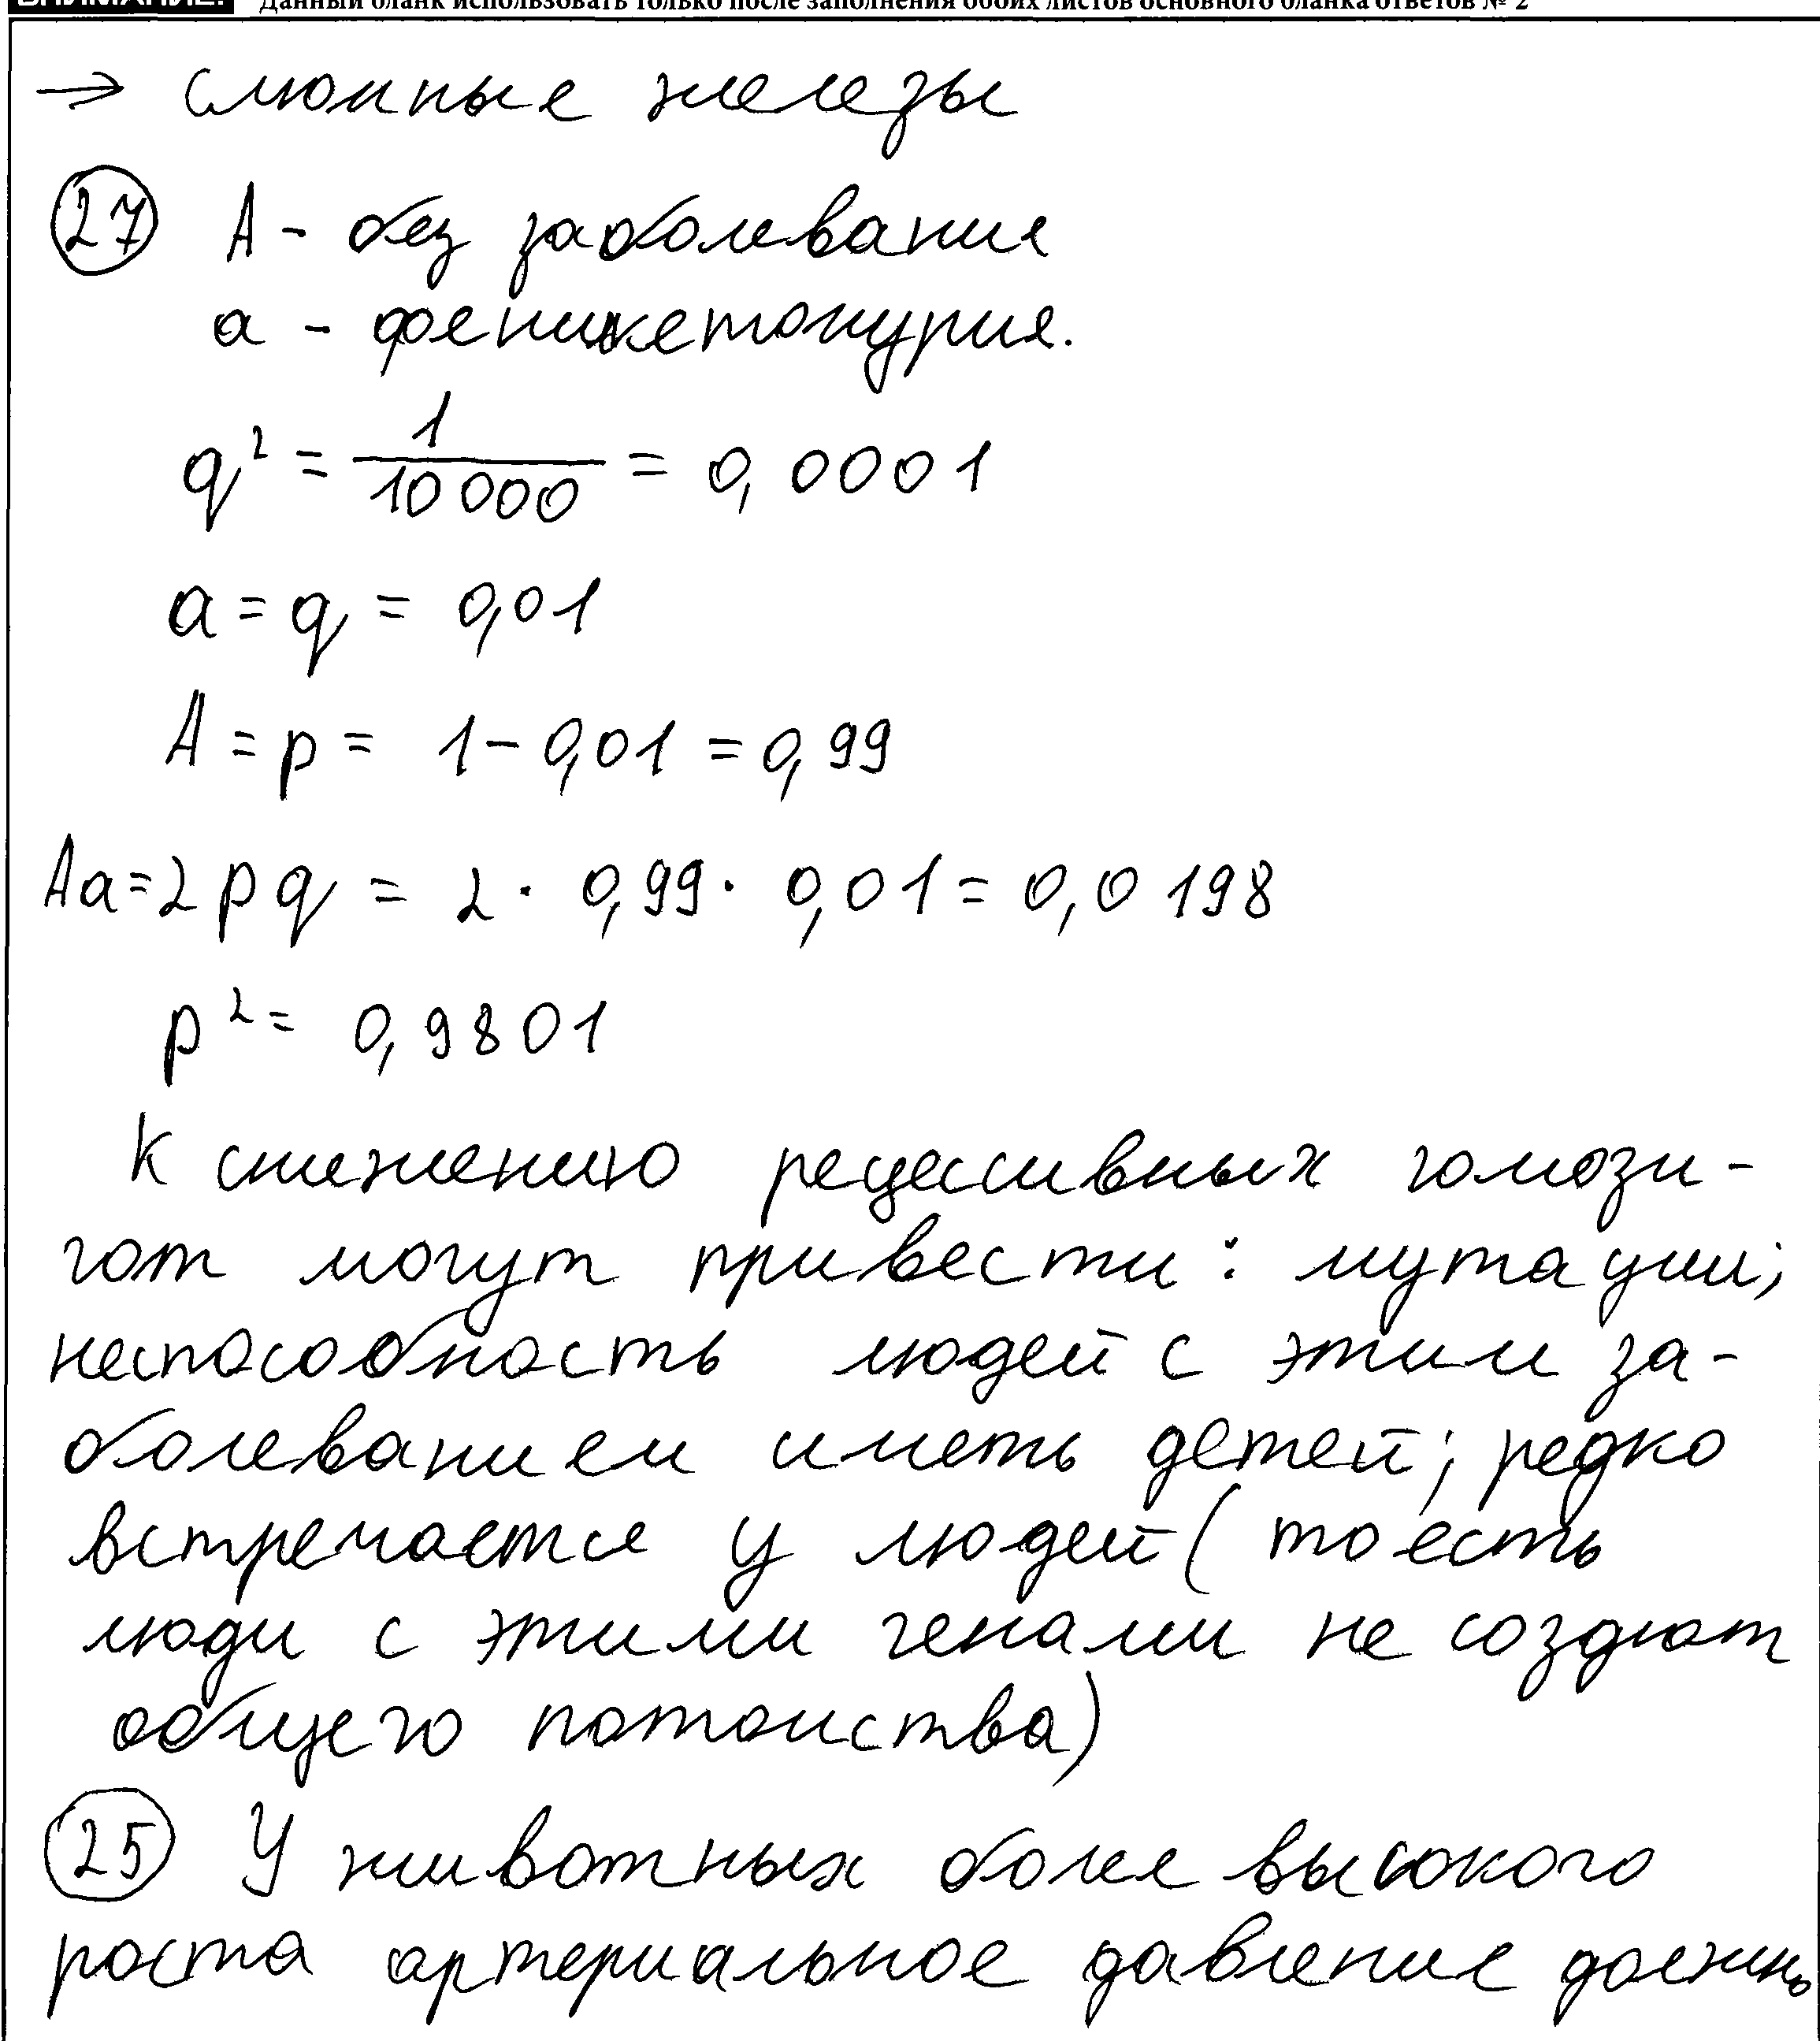 ВНИМАНИЕ! Данный бланк использовать только после заполнения обоих листов основного бланка ответов № 2
→ слюнные железы
27 А - без заболевания
а - фенилкетонурия.
q² = 1/10 000 = 0,0001
a = q = 0,01
A = p = 1 - 0,01 = 0,99
Aa = 2pq = 2 · 0,99 · 0,01 = 0,0198
p² = 0,9801
К снижению рецессивных гомози-
гот могут привести: мутации;
неспособность людей с этим за-
болеванием иметь детей; редко
встречается у людей (то есть
люди с этими генами не создют
общего потомства)
25 У животных более высокого
роста артериальное давление должно